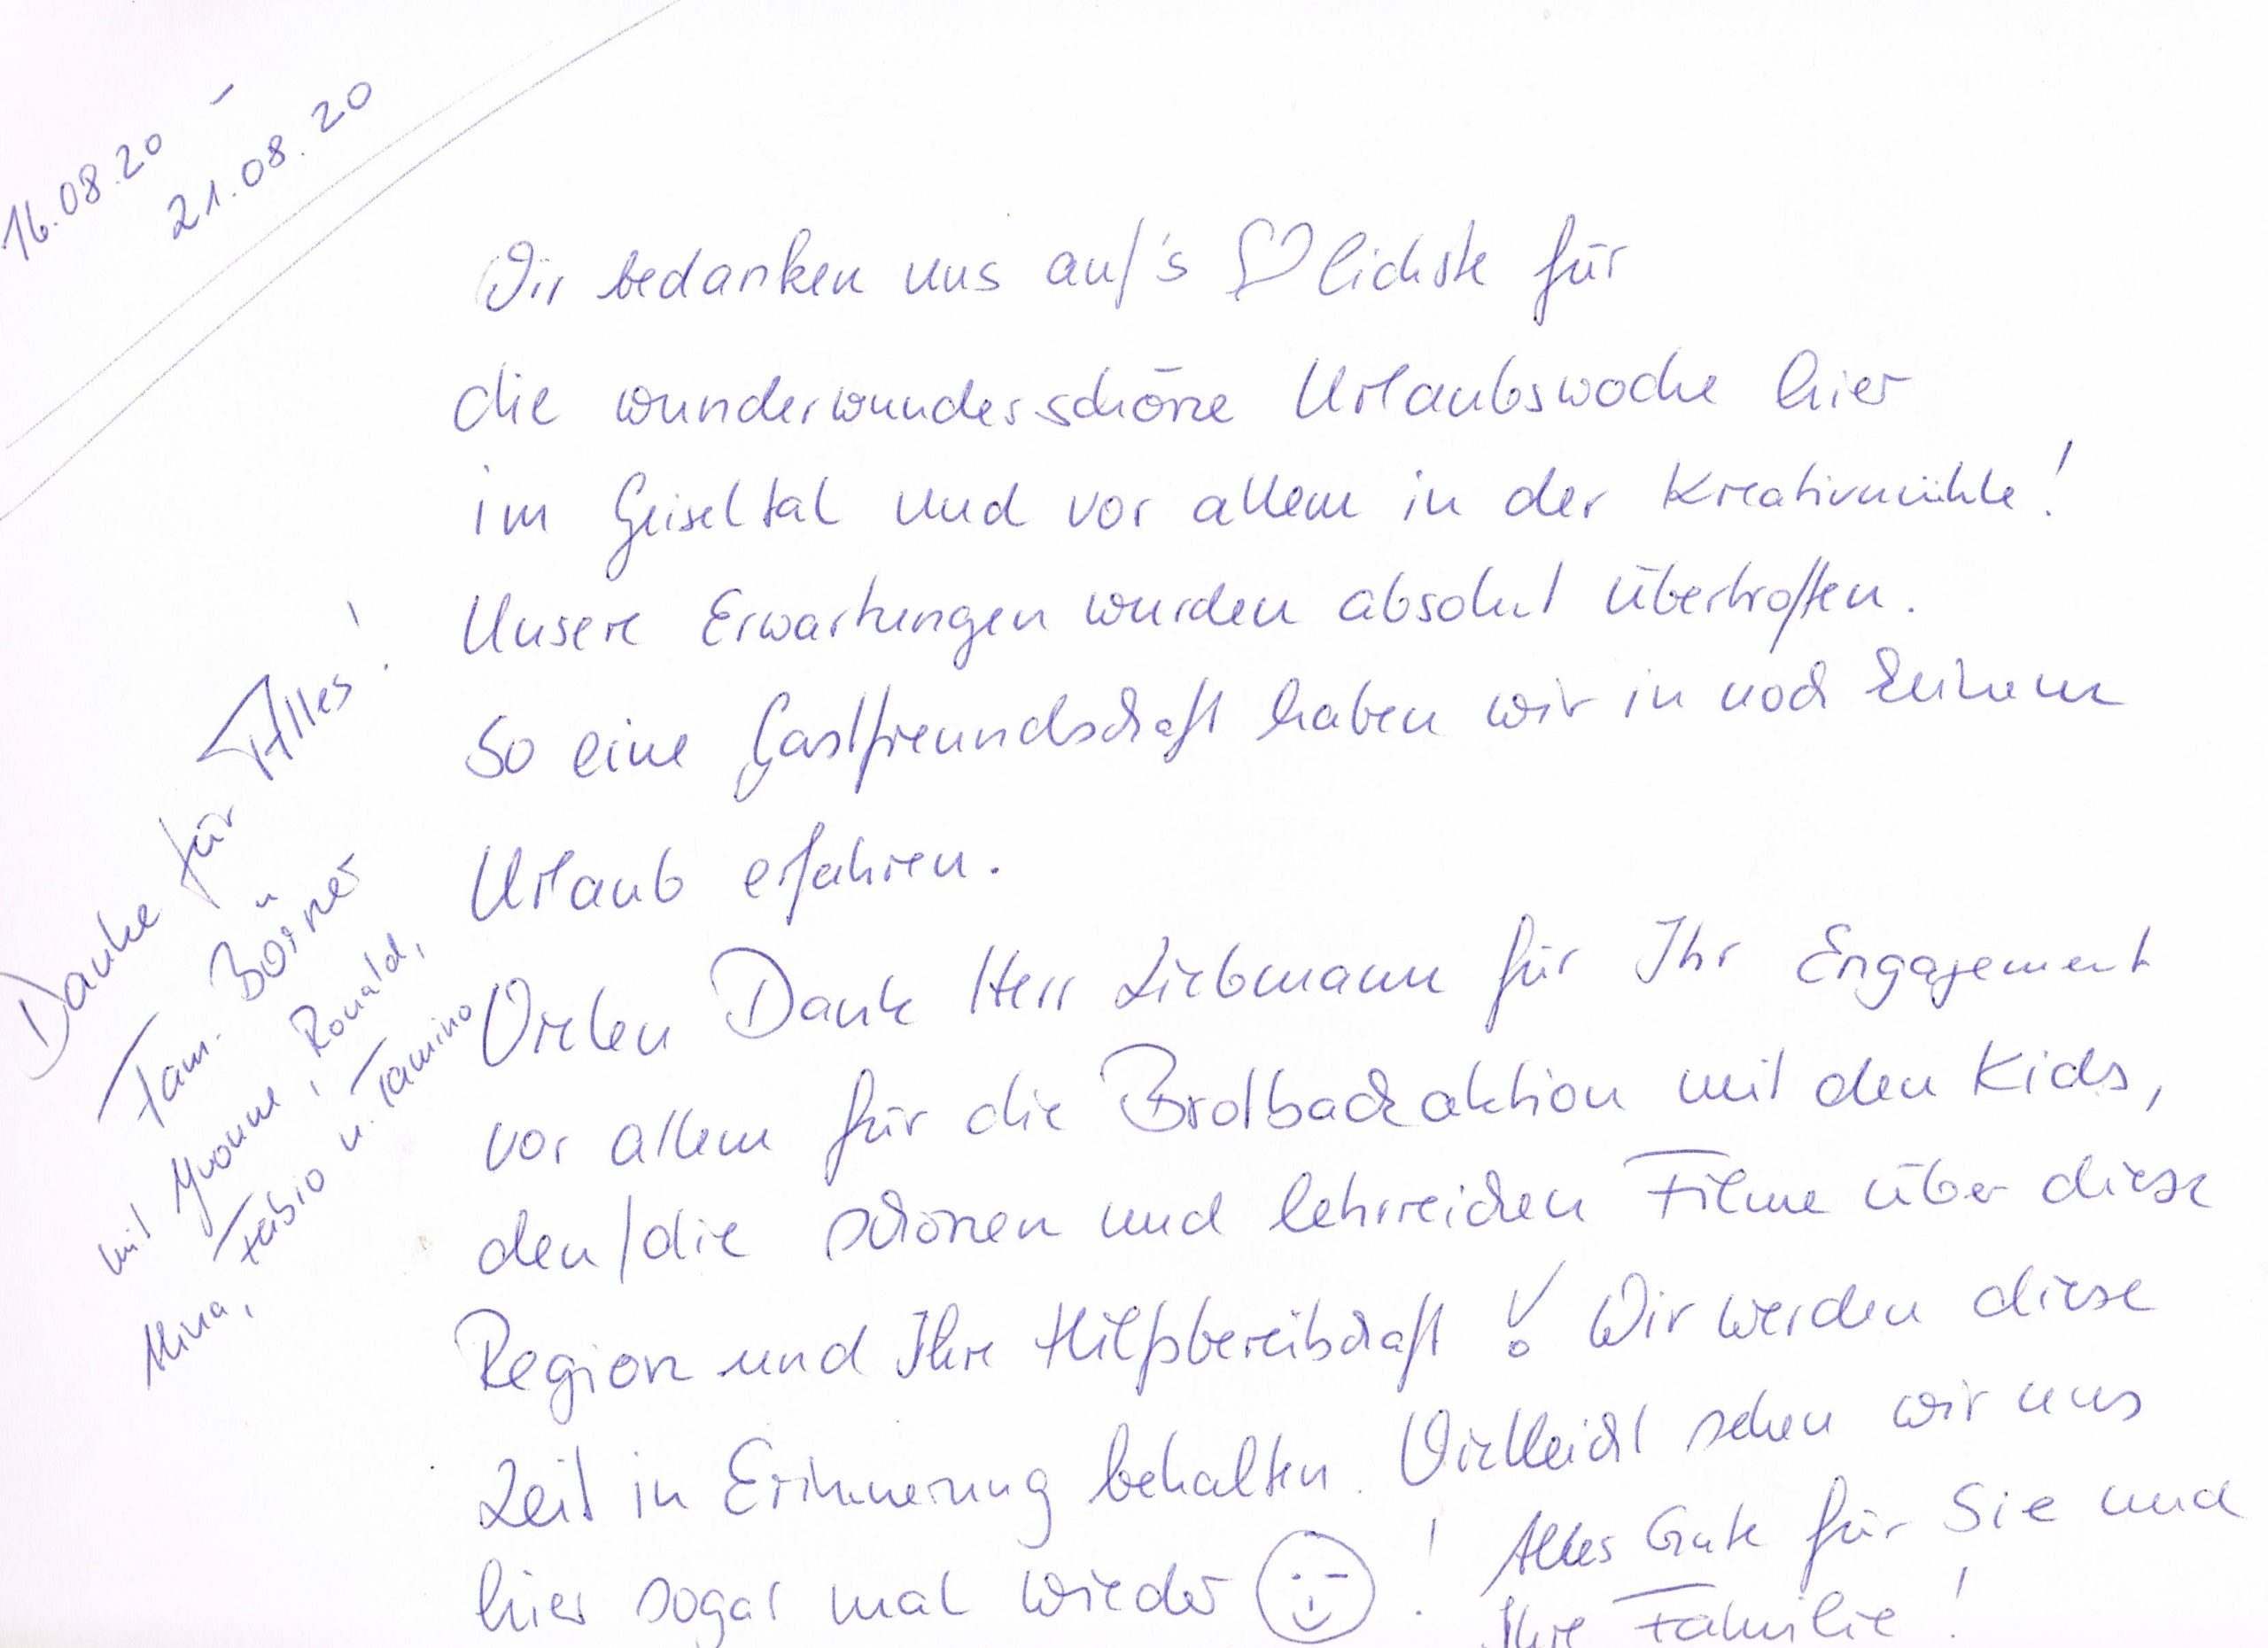 16.08.20 –
21.08.20
Wir bedanken uns auf's ♡lichste für
die wunderwunderschöne Urlaubswoche hier
im Geiseltal und vor allem in der Kreativmühle!
Unsere Erwartungen wurden absolut übertroffen.
So eine Gastfreundschaft haben wir in noch keinem
Urlaub erfahren.
Vielen Dank Herr Liebmann für Ihr Engagement
vor allem für die Brotbackaktion mit den Kids,
den/die schönen und lehrreichen Filme über diese
Region und Ihre Hilfsbereitschaft! Wir werden diese
Zeit in Erinnerung behalten. Vielleicht sehen wir uns
hier sogar mal wieder 😉!
Alles Gute für Sie und
Ihre Familie!
Danke für Alles!
Fam. Börner
mit Yvonne, Ronald,
Mina, Fabio u. Tamino